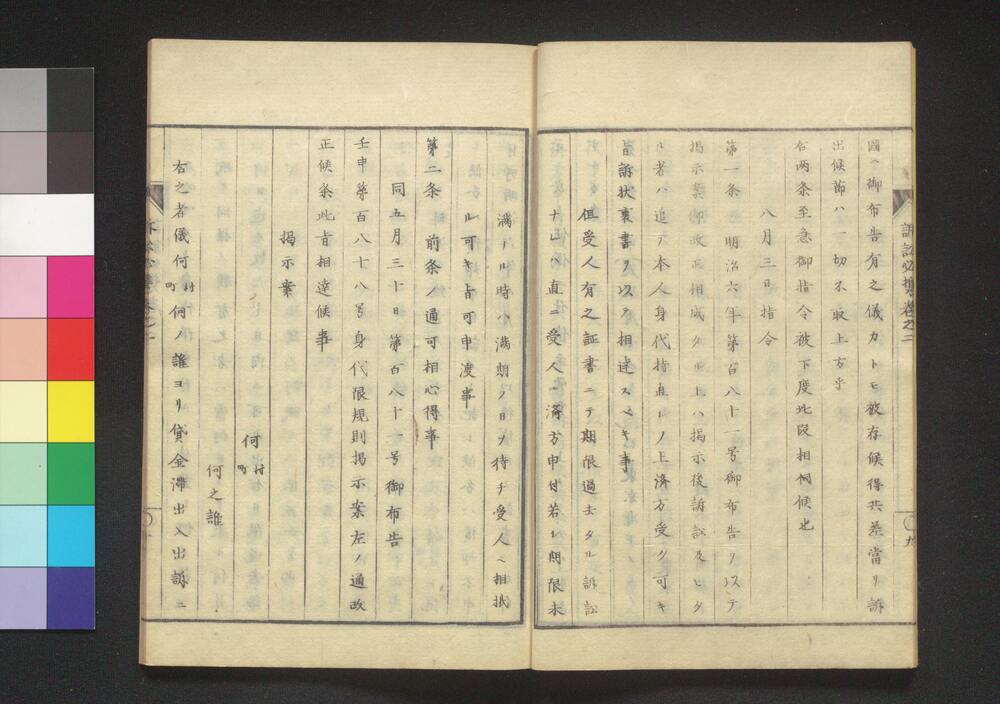 訴訟必携巻之二
九
國ヘ御布告有之儀カトモ被存候得共差當リ訴
出候節ハ一切不取上方乎
右両条至急御指令被下度此段相伺候也
八月三日指令
第一条 明治六年第百八十一号御布告ヲ以テ
掲示案御改正相成タル上ハ掲示後訴訟及ヒタ
ル者ハ追テ本人身代持直シノ上済方受ク可キ
旨訴状裏書ヲ以テ相達スヘキ事
但受人有之証書ニテ期限過去タル訴訟
ナレハ直ニ受人ヘ済方申付若シ期限未
満ナル時ハ満期ノ日ヲ待チ受人ヘ相抵
ル可キ旨可申渡事
第二条 前条ノ通可相心得事
同五月三十日第百八十一号御布告
壬申第百八十八号身代限規則掲示案左ノ通改
正候条此旨相達候事
掲示案
何村町
何之誰
右之者儀何村町何ノ誰ヨリ貸金滞出入出訴ニ